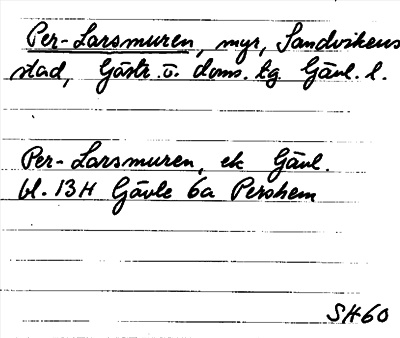 Per-Larsmuren, myr, Sandvikens
stad, Gästr. ö. doms. tg Gävl. l.
Per-Larsmuren, ek Gävl.
bl. 13H Gävle 6a Pershem
SH60